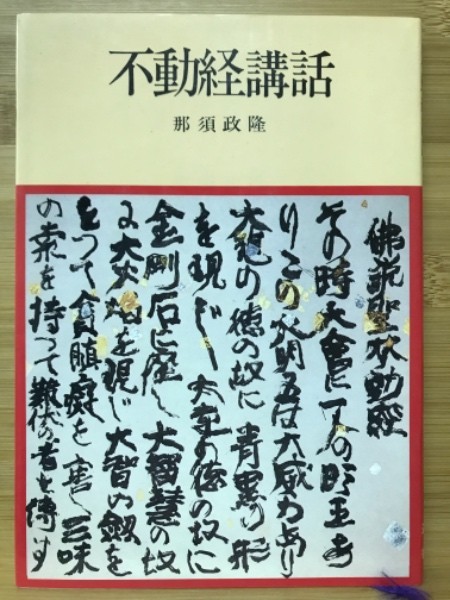 不動経講話
那須政隆
佛説聖不動經
その時大會に一人の明王あ
りこの大明王は大威力あり
大悲の徳の故に青黒の形
を現じ大定の徳の故に
金剛石に座し大智慧の故
に大火焔を現じ大智の劔を
とつて貪瞋癡を害し三昧
の索を持つて難伏の者を縛す